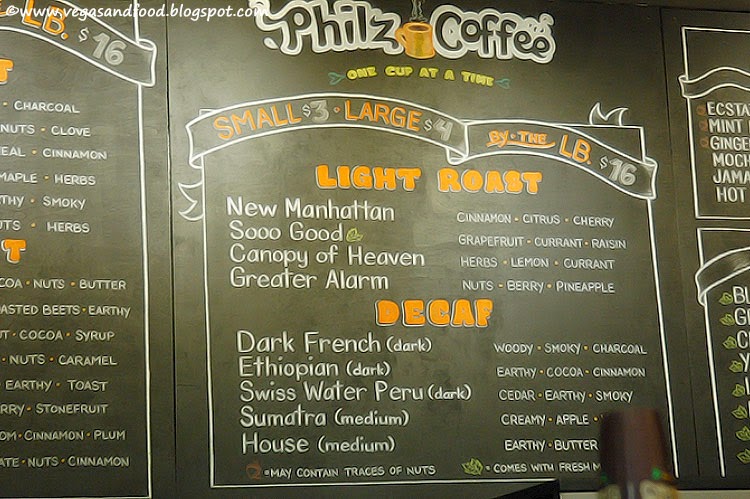 ©www.vegasandfood.blogspot.com
LB. $16
CHARCOAL
NUTS · CLOVE
CINNAMON
MAPLE · HERBS
SMOKY
NUTS · HERBS
NUTS · BUTTER
ROASTED BEETS · EARTHY
COCOA · SYRUP
NUTS · CARAMEL
EARTHY · TOAST
STONEFRUIT
CINNAMON · PLUM
NUTS · CINNAMON
Philz Coffee
ONE CUP AT A TIME
SMALL $3 · LARGE $4
BY · THE LB. $16
LIGHT ROAST
New Manhattan CINNAMON · CITRUS · CHERRY
Sooo Good GRAPEFRUIT · CURRANT · RAISIN
Canopy of Heaven HERBS · LEMON · CURRANT
Greater Alarm NUTS · BERRY · PINEAPPLE
DECAF
Dark French (dark) WOODY · SMOKY · CHARCOAL
Ethiopian (dark) EARTHY · COCOA · CINNAMON
Swiss Water Peru (dark) CEDAR · EARTHY · SMOKY
Sumatra (medium) CREAMY · APPLE ·
House (medium) EARTHY · BUTTER
=MAY CONTAIN TRACES OF NUTS
=COMES WITH FRESH
MINT
HOT